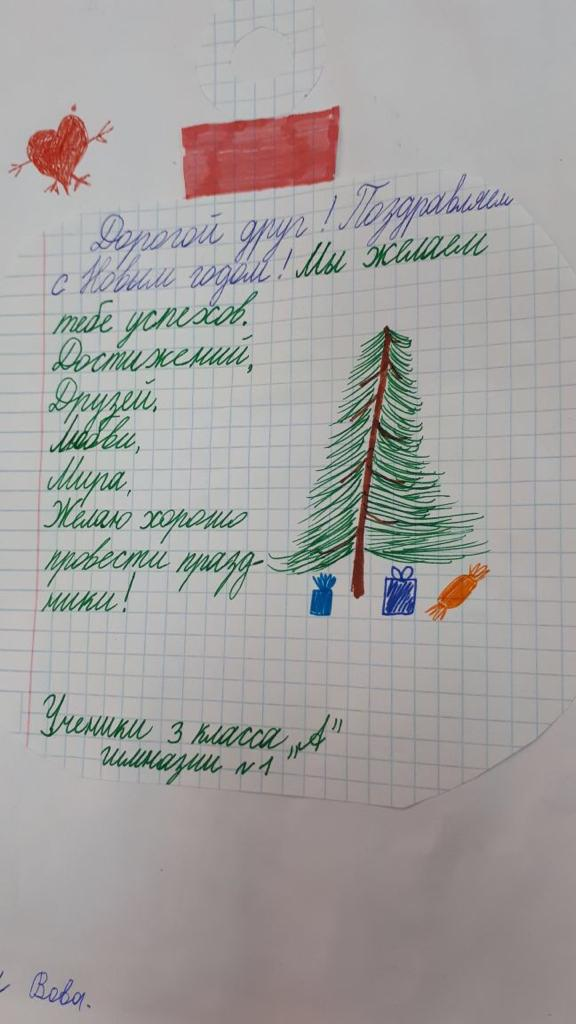 Дорогой друг! Поздравляем
с Новым годом! Мы желаем
тебе успехов.
Достижений,
Друзей.
Любви,
Мира,
Желаю хорошо
провести празд-
ники!
Ученики 3 класса „А"
гимназии №1
Вова.